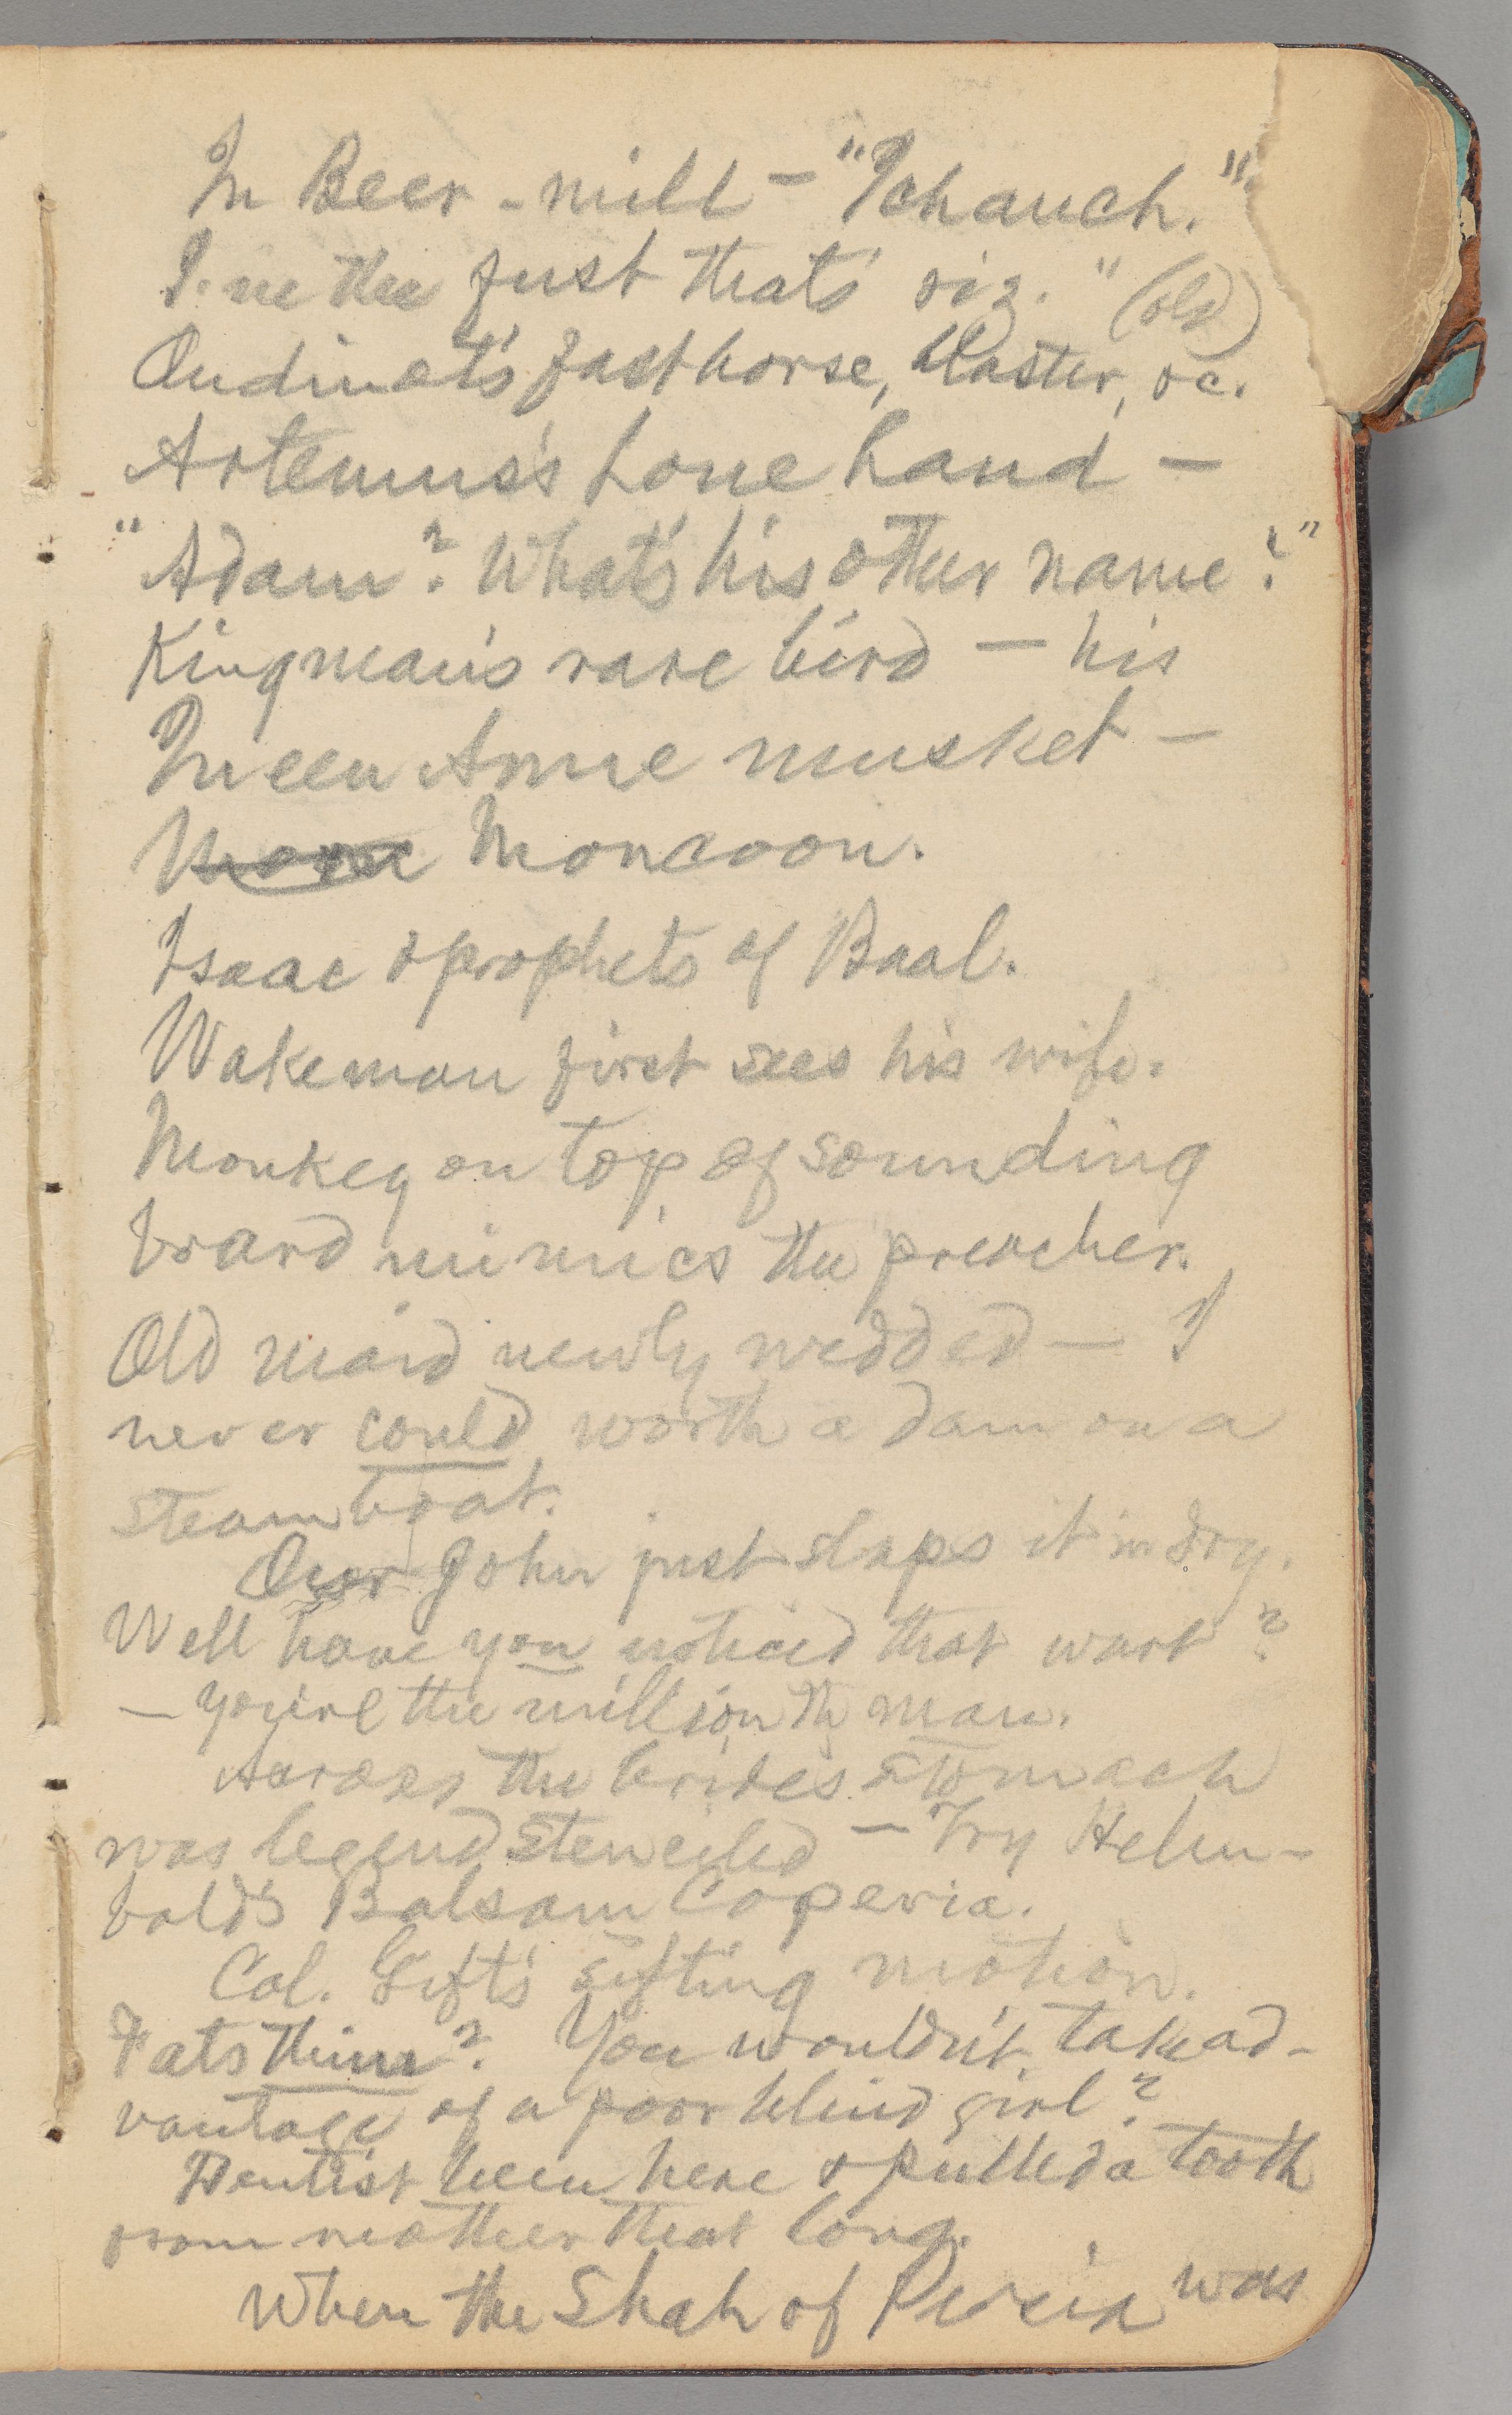 In Beer-mill — "Ichauch."
I'm the just that's riz." (old)
Oudinot's fast horse, Plaster, &c.
Artemus's Lone hand —
"Adam? What's his other name?"
Kingman's rare bird — his
Queen Anne musket —
Moncoon.
Isaac & prophets of Baal.
Wakeman first sees his wife.
Monkey on top of sounding
board mimics the preacher.
Old maid newly wedded — I
never could worth a dam on a
steamboat.
Our John just slaps it in dry.
Well have you noticed that wart?
— You're the millionth man.
Across the brides stomach
was legend stenciled — Try Helm-
bold's Balsam Copevia.
Col. Gift's sifting motion.
Fats thim? You wouldn't take ad-
vantage of a poor blind girl?
Dentist been here & pulled a tooth
from mother that long.
When the Shah of Persia was